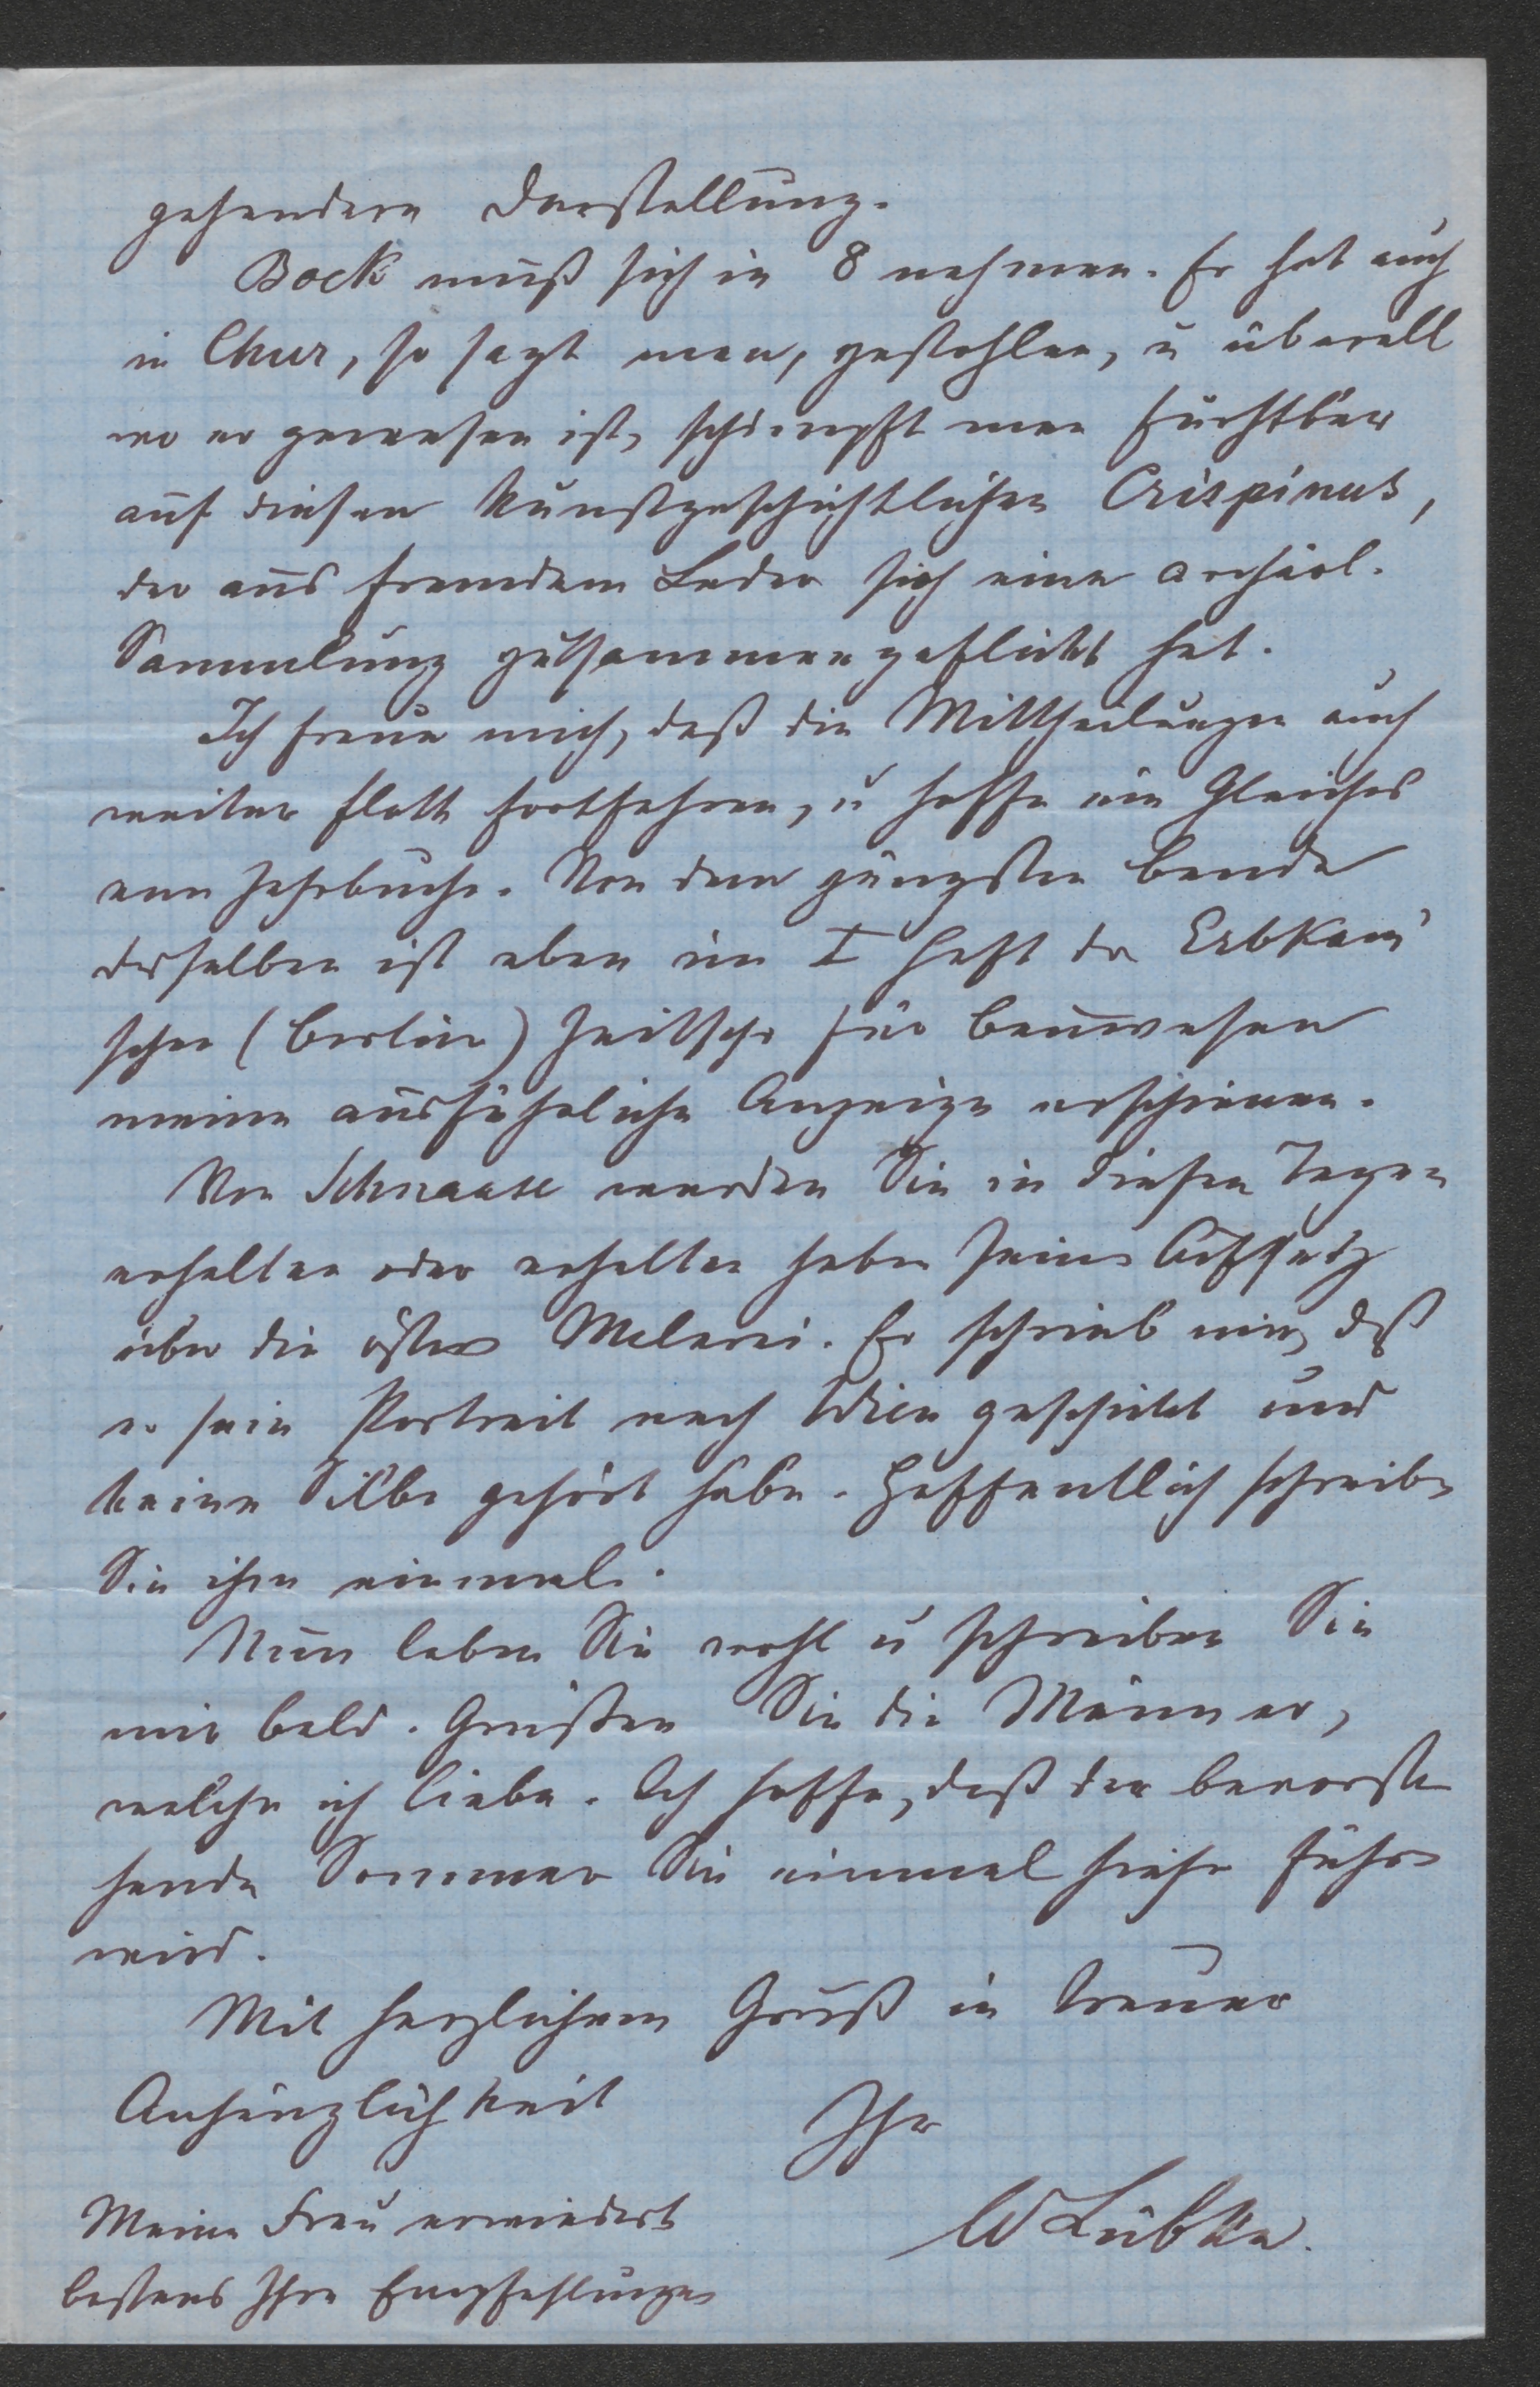 gehendern Darstellung.
Bock muß sich in 8 nehmen. Er hat auch
in Chur, so sagt man, gestohlen, u überall
wo er gewesen ist, schimpft man furchtbar
auf diesen kunstgeschichtlichen Crispinus,
der aus fremdem Leder sich eine archäol.
Sammlung zusammengeflickt hat.
Ich freue mich, daß die Mittheilungen auch
weiter flott fortfahren, u hoffe ein Gleiches
vom Jahrbuche. Von dem jüngsten Bande
desselben ist eben im I Heft der Erbkam'
schen (Berlin) Zeitschr für Bauwesen
meine ausführliche Anzeige erschienen.
Von Schnaase werden Sie in diesen Tagen
erhalten oder erhalten haben seinen Aufsatz
über die österr Malerei. Er schrieb mir, daß
er sein Portrait nach Wien geschickt und
keine Silbe gehört habe. Hoffentlich schreiben
Sie ihm einmal.
Nun leben Sie wohl u schreiben Sie
mir bald. Grüßen Sie die Männer,
welche ich liebe. Ich hoffe, daß der bevorste
hende Sommer Sie einmal hieher führen
wird.
Mit herzlichem Gruß in treuer
Anhänglichkeit
Ihr
W Lübke.
Meine Frau erwiedert
bestens Ihre Empfehlungen